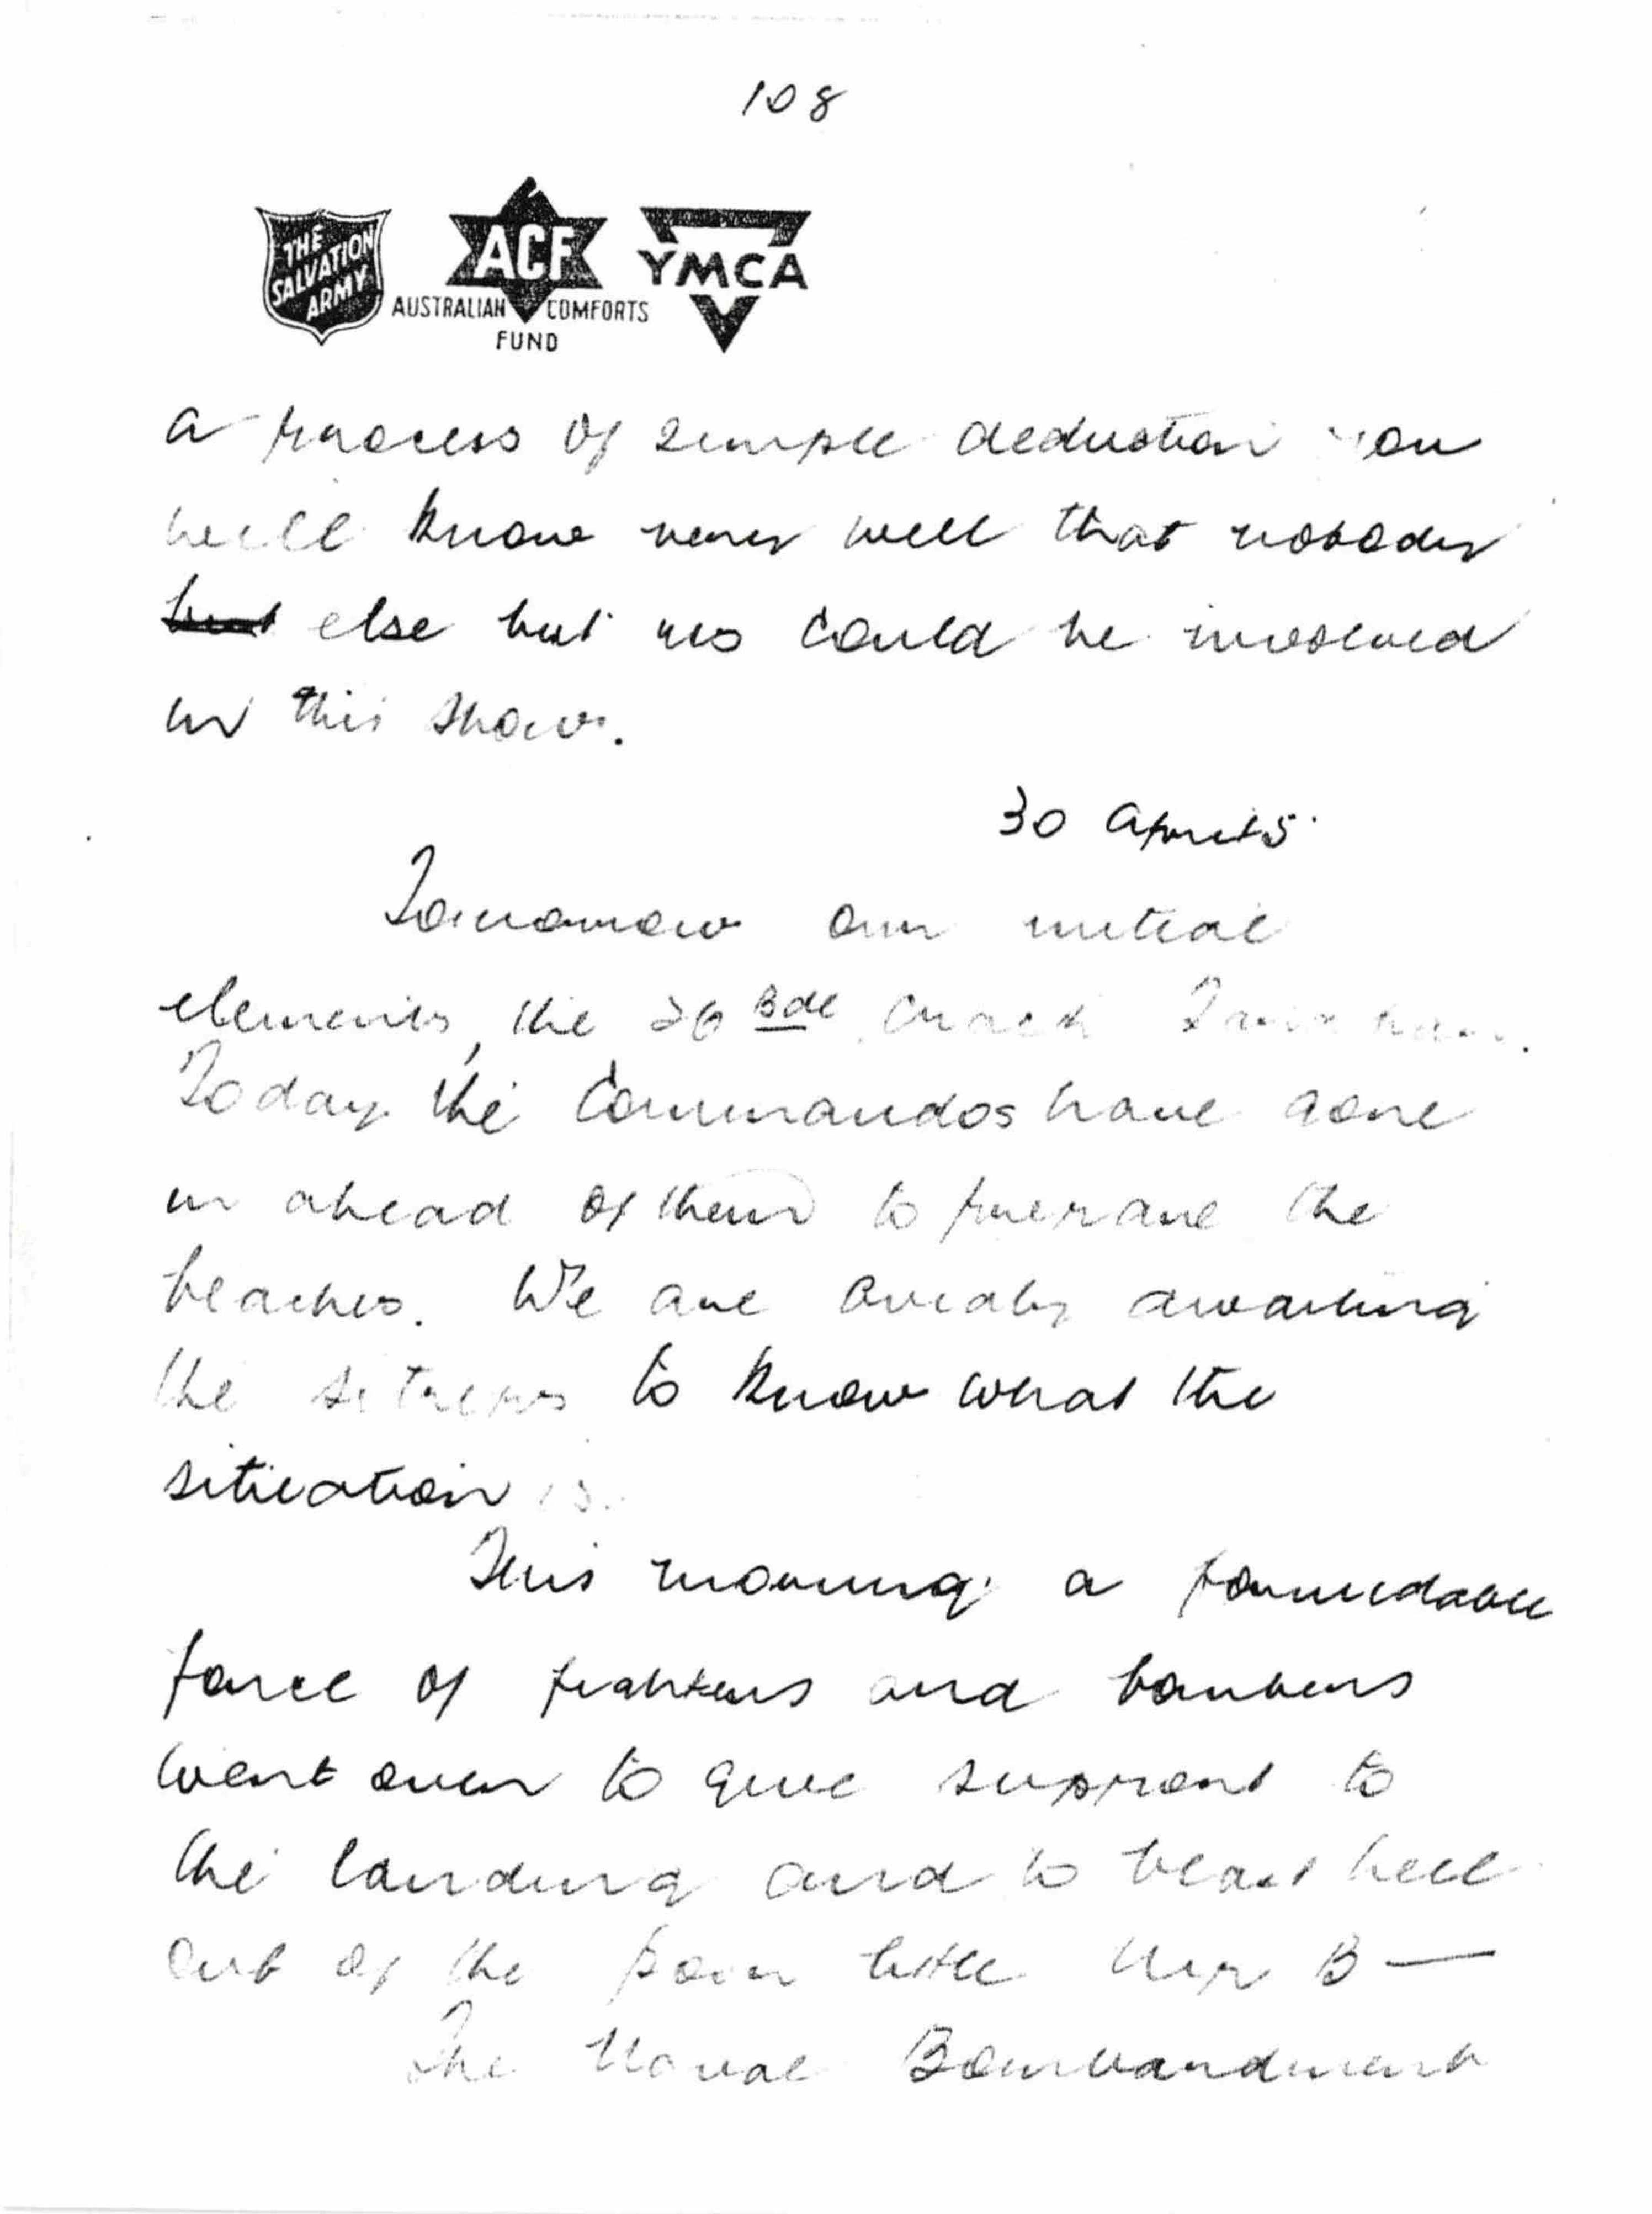 108
THE SALVATION ARMY
ACF
AUSTRALIAN COMFORTS FUND
YMCA
a process of simple deduction you
will know very well that nobody
but else but us could be involved
in this show.
30 April 45
Tomorrow our initial
elements, the 26 Bde crack Tarakan.
Today the Commandos have gone
in ahead of them to prepare the
beaches. We are avidly awaiting
the sitreps to know what the
situation is.
This morning a formidable
force of fighters and bombers
went over to give support to
the landing and to blast hell
out of the poor little Nip B—
The Naval Bombardment